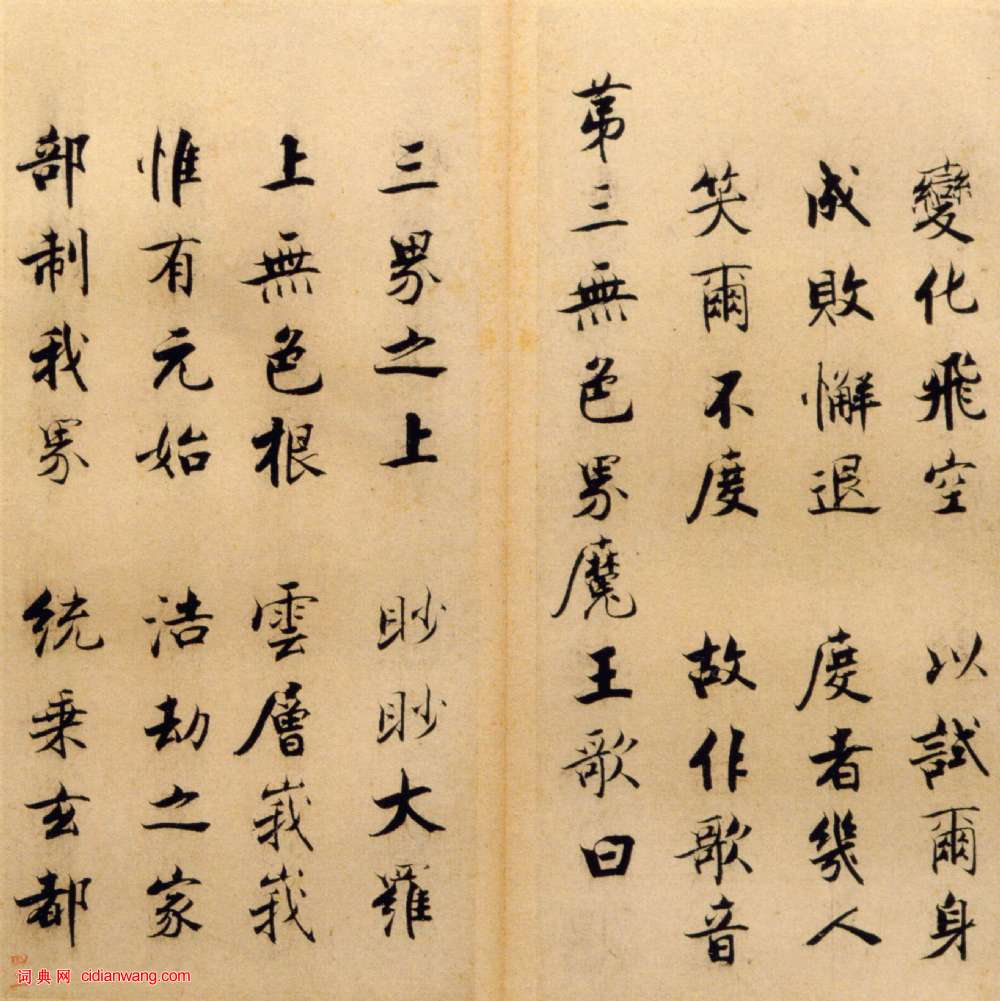 變化飛空 以試爾身
成敗懈退 度者幾人
笑爾不度 故作歌音
苐三無色界魔王歌曰
三界之上 眇眇大羅
上無色根 雲層峩峩
惟有元始 浩劫之家
部制我界 統乗玄都
词典网 cidianwang.com